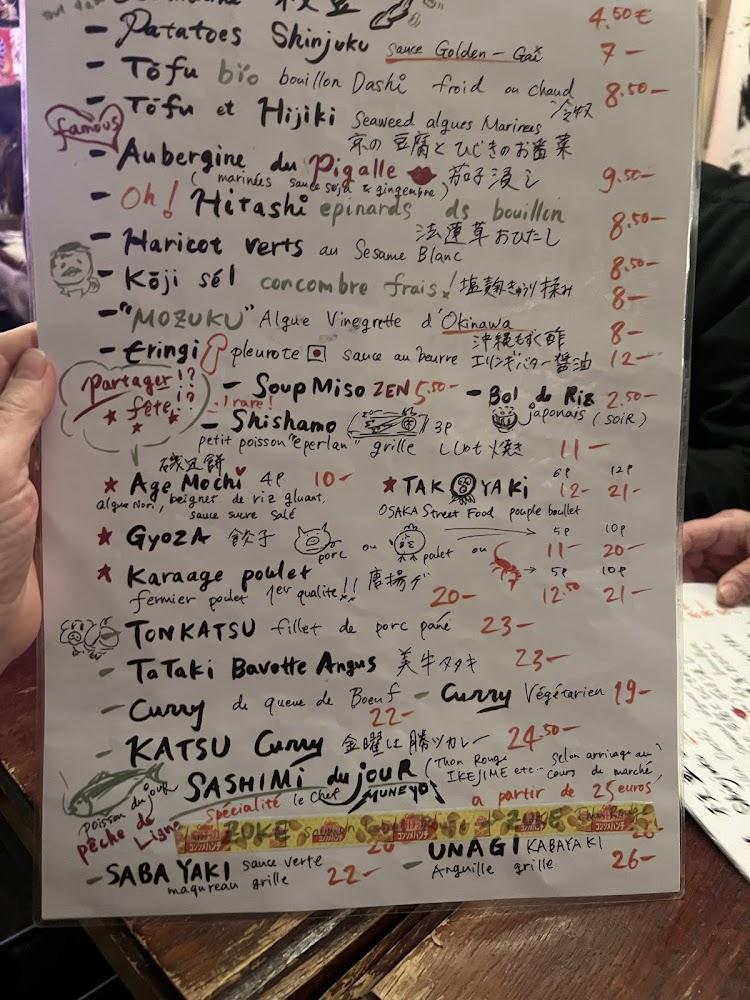 4.50€
- Patatoes Shinjuku sauce Golden-Gaï 7-
- Tōfu bio bouillon Dashi froid ou chaud 8.50-
冷奴
famous
- Tōfu et Hijiki Seaweed algues Marinees
京の豆腐とひじきのお番菜
- Aubergine du Pigalle 茄子浸し 9.50-
(marinées sauce soja & gingembre)
- Oh! Hitashi epinards ds bouillon 8.50-
法蓮草おひたし
- Haricot verts au Sesame Blanc 8.50-
- Kōji sel concombre frais! 塩麹きゅうり揉み 8-
- "MOZUKU" Algue Vinegrette d'Okinawa 8-
沖縄もずく酢
- Eringi pleurote sauce au beurre エリンギバター醤油 12-
Partager!?
fête!?
- Soup Miso ZEN 5.50-
- Bol de Riz 2.50-
japonais (SOIR)
1 rare!
- Shishamo 3p
petit poisson "eperlan" grille ししゃも焼き 11-
磯辺餅
Age Mochi 4p 10-
algue Nori, beignet de riz gluant,
sauce sucre salé
TAKOYAKi 6p 12- 12p 21-
OSAKA Street Food poulpe boullet
GyoZA 餃子 porc ou pulet ou 5p 11- 10p 20-
Karaage poulet 唐揚ゲ 5p 12.50 10p 21-
fermier poulet 1er qualite!! 20-
TONKATSU fillet de porc pané 23-
- TaTaki Bavette Angus 美牛タタキ 23-
- Curry de queue de Boeuf 22-
- Curry Végétarien 19-
- KATSU Curry 金曜は勝ツカレー 24.50-
SASHIMI du jOUR (Thon Rouge IKEJIME etc... selon arrivage au cours de marché)
poisson du jour
pêche de Ligne
Spécialité le Chef MUNEYO
a partir de 25 euros
コンソメパンチ
- SABA YAKI sauce verte 22-
maqureau grille
- UNAGI KABAYAKI 26-
Anguille grille